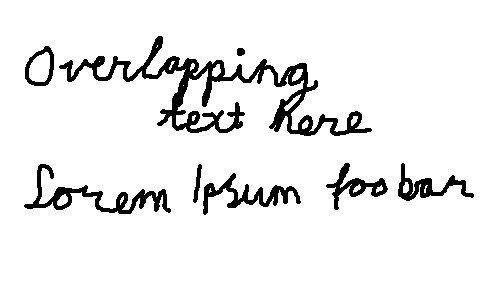 Overlapping
text here
Lorem Ipsum foobar